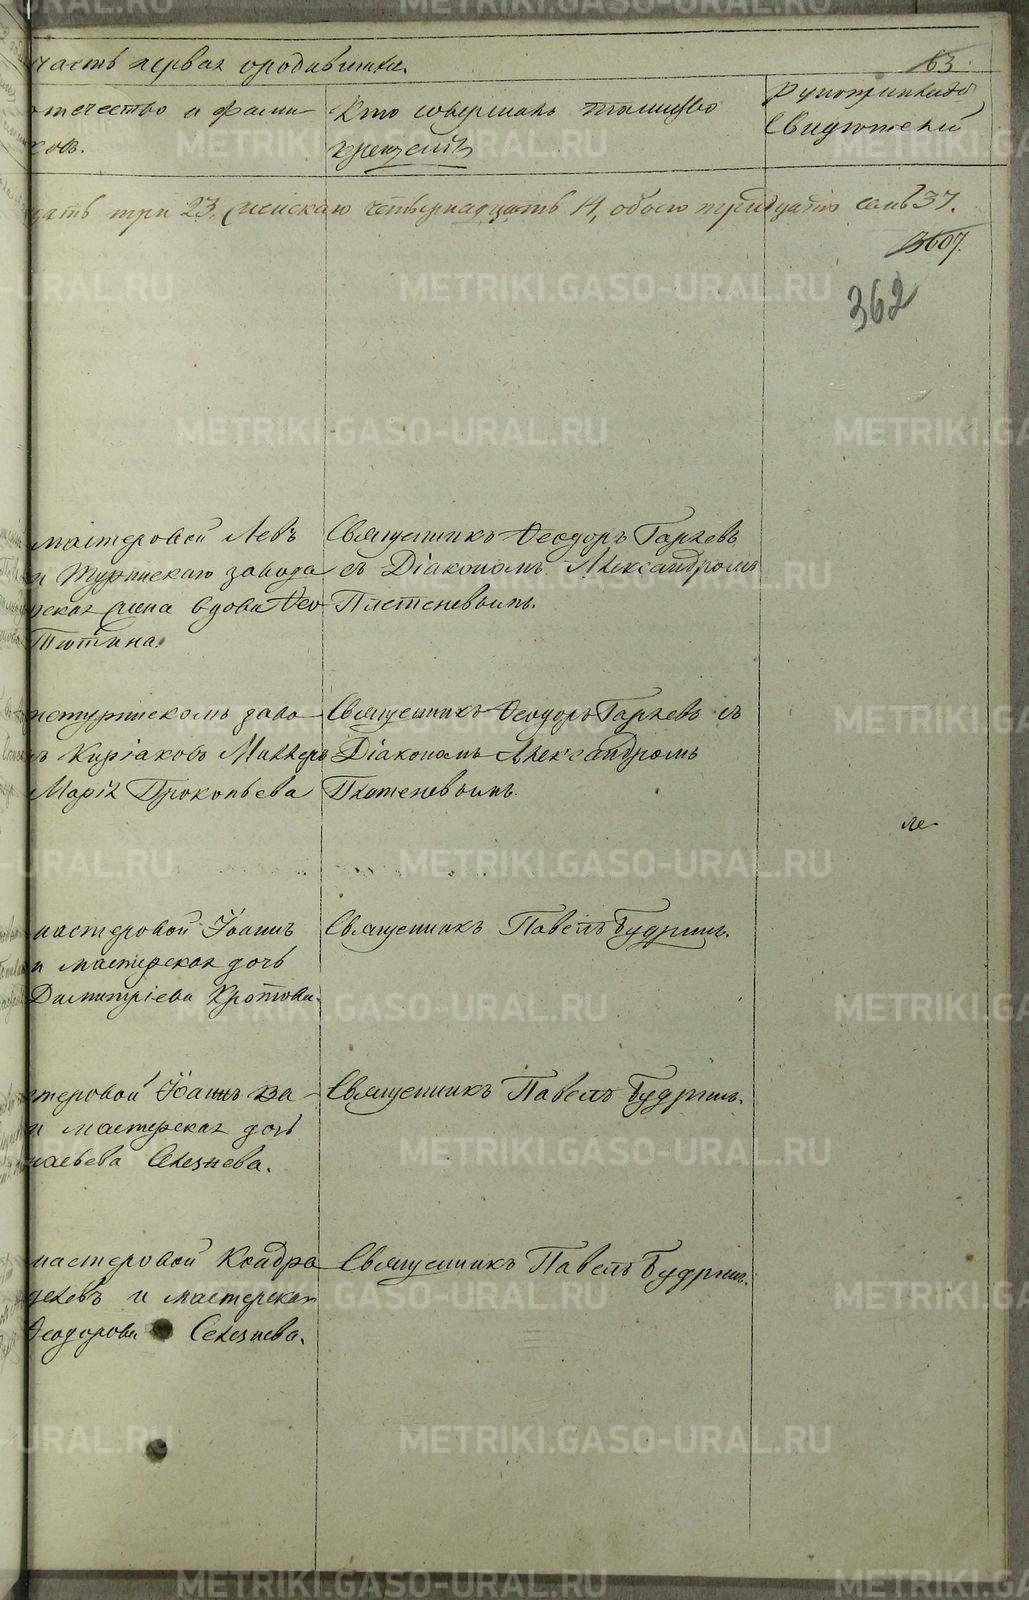 часть первая о родившихся.
63.
отечество и фами-
ковъ.
Кто совершалъ таинство
крещенія
Рукоприкладс
Свидѣтелей
цать три 23, женскаго четырнадцать 14, обоего тридцать семь 37.
3607.
362
мастеровой Левъ
и Туринскаго завода
жена вдова Ѳео-
Тютина.
Священникъ Ѳеодоръ Гаряевъ
съ Діакономъ Александромъ
Плетеневымъ.
нетуринскомъ заво-
ъ Киріаковъ Миллеръ
Марія Прокопьева
Священникъ Ѳеодоръ Гаряевъ съ
Діакономъ Александромъ
Плетеневымъ.
мастеровой Іоаннъ
и мастерская дочь
Димитріева Кротова.
Священникъ Павелъ Будринъ.
стеровой Іоаннъ
и мастерская дочь
Селезнева.
Священникъ Павелъ Будринъ.
мастеровой Кондра-
и мастерская
Ѳеодорова Селезнева.
Священникъ Павелъ Будринъ.
METRIKI.GASO-URAL.RU